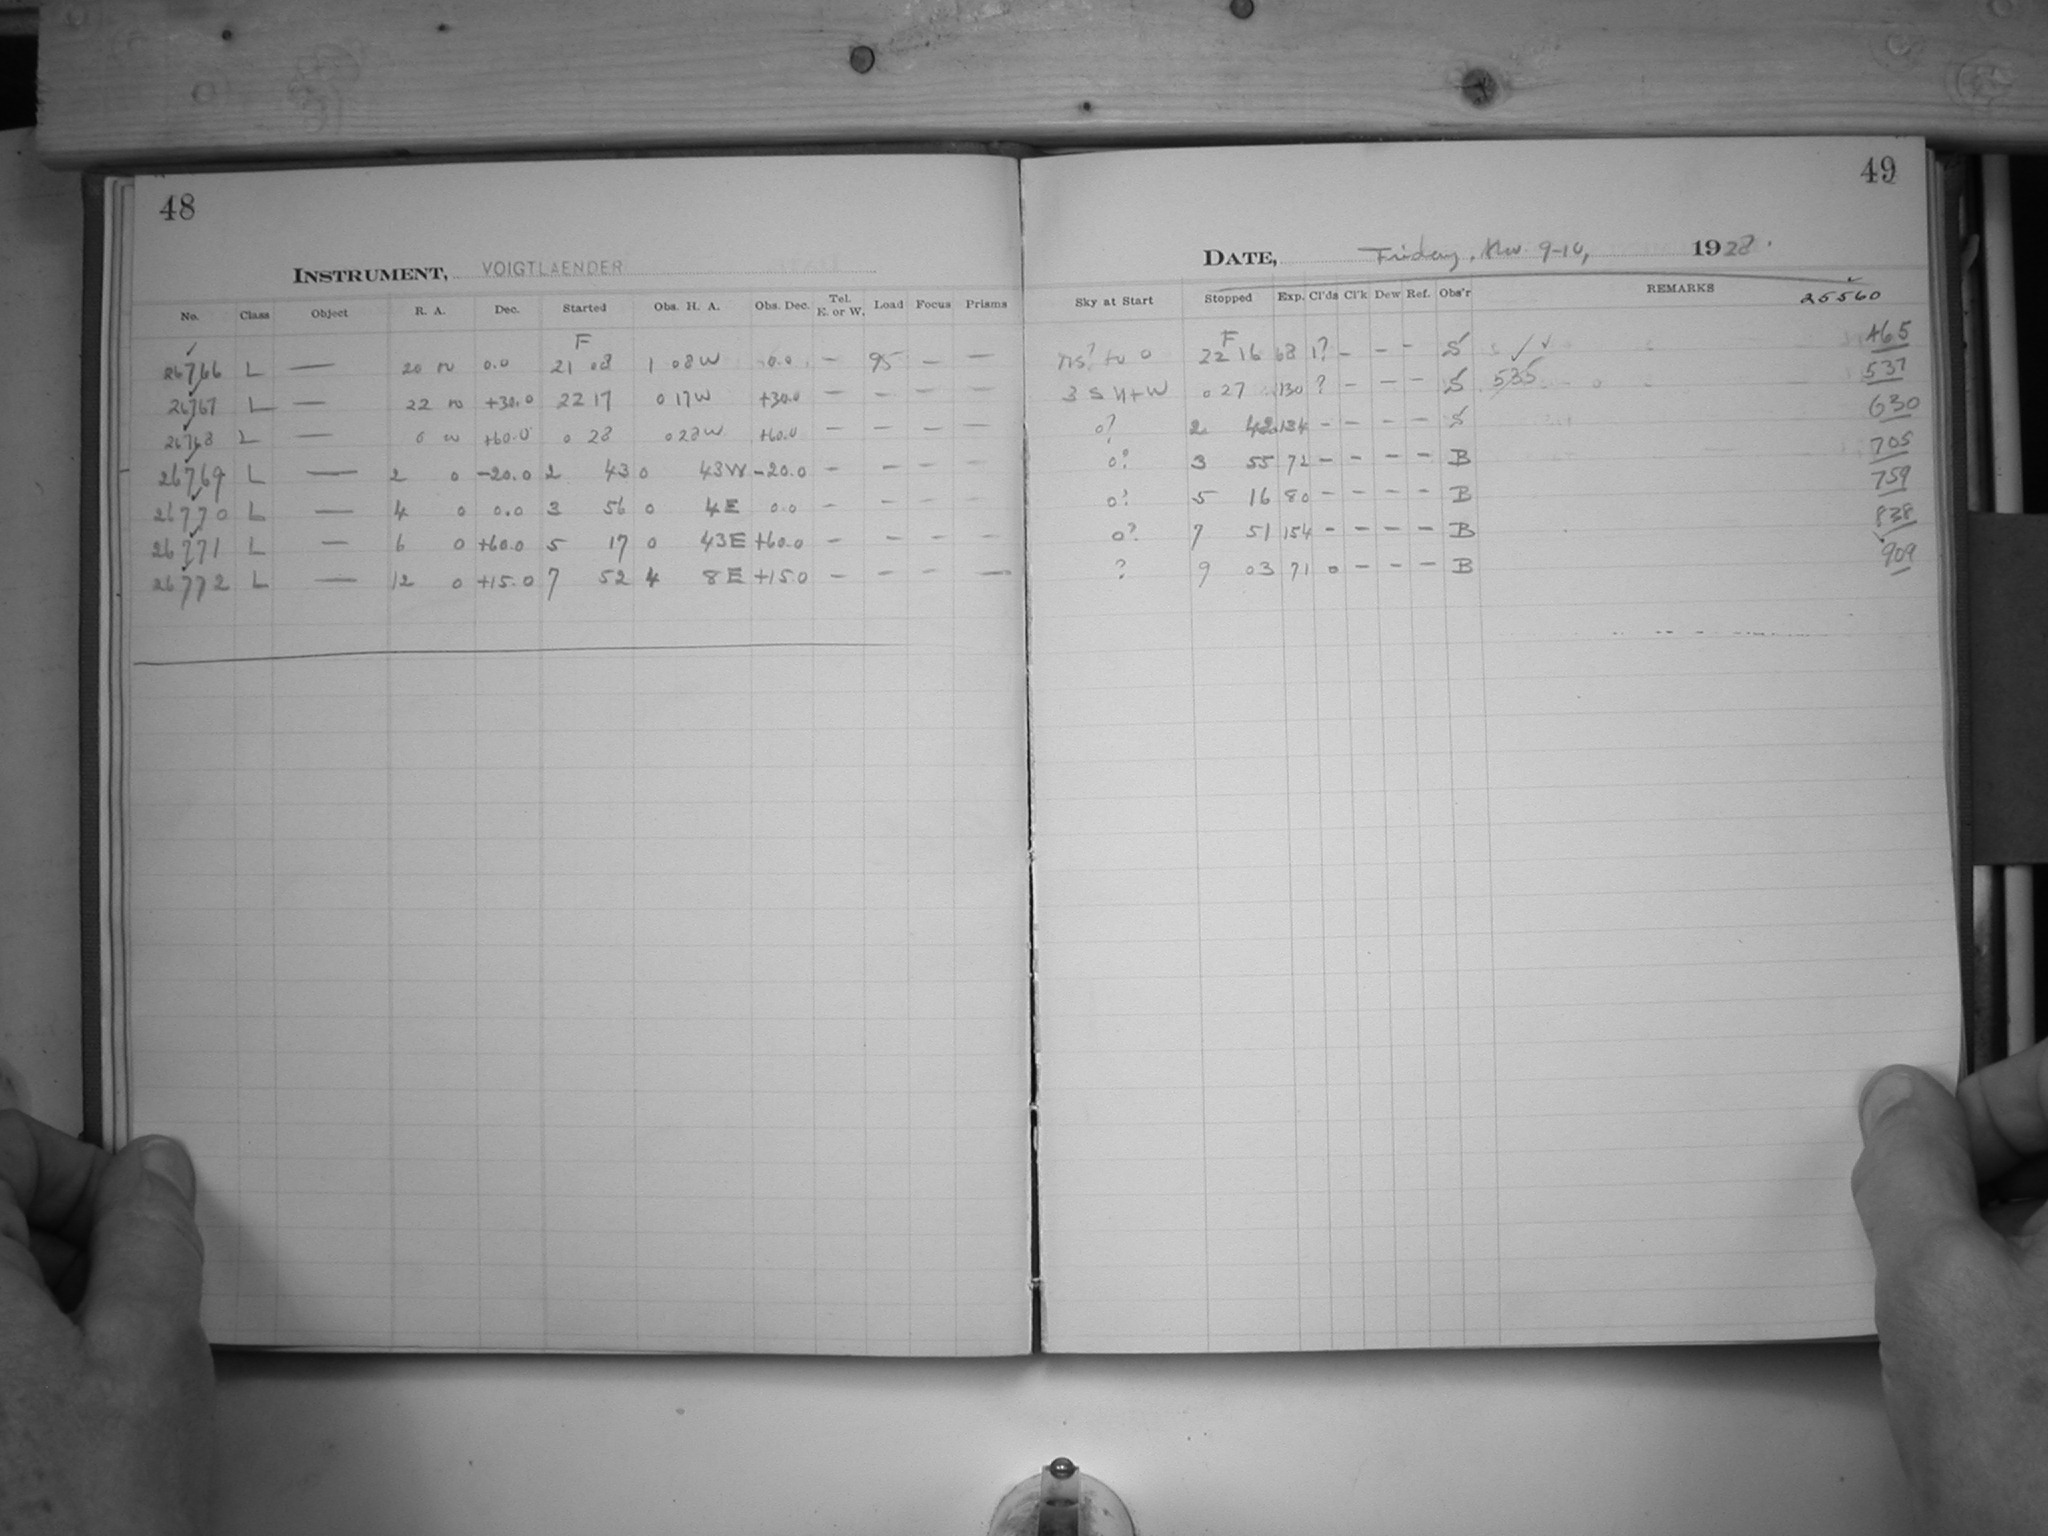 48
INSTRUMENT, VOIGTLAENDER
No. Class Object R. A. Dec. Started Obs. H. A. Obs. Dec. Tel. E. or W. Load Focus Prisms
F
26766 L — 20 0 0.0 21 08 1 08 W 0.0 — 95 — —
26767 L — 22 0 +30.0 22 17 0 17 W +30.0 — — — —
26768 L — 0 0 +60.0 0 28 0 28 W +60.0 — — — —
26769 L — 2 0 -20.0 2 43 0 43 W -20.0 — — — —
26770 L — 4 0 0.0 3 56 0 4 E 0.0 — — — —
26771 L — 6 0 +60.0 5 17 0 43 E +60.0 — — — —
26772 L — 12 0 +15.0 7 52 4 8 E +15.0 — — — —
49
DATE, Friday, Nov 9-10, 1928.
Sky at Start Stopped Exp. Cl'ds Cl'k Dew Ref. Obs'r REMARKS 25560
F
to 0 22 16 68 1? — — — S ✓ ✓ 465
3 S N+W 0 27 130 ? — — — S 535 537
0? 2 42 134 — — — — S 630
0? 3 55 72 — — — — B 705
0? 5 16 80 — — — — B 759
0? 7 51 154 — — — — B 838
? 9 03 71 0 — — — B 909